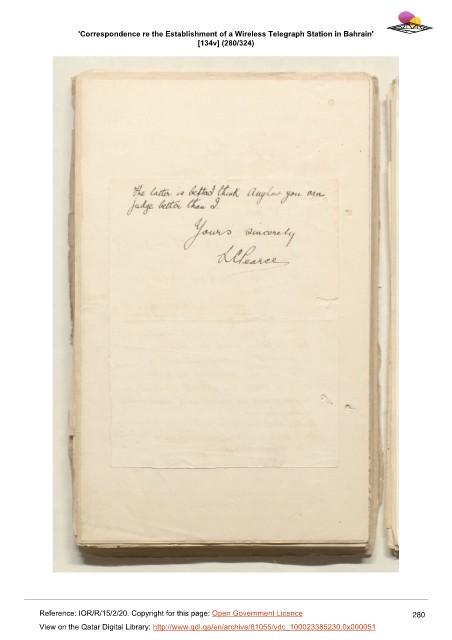 'Correspondence re the Establishment of a Wireless Telegraph Station in Bahrain'
[134v] (280/324)
The latter is better I think you can
judge better than I.
Yours sincerely
Pearce
Reference: IOR/R/15/2/20. Copyright for this page: Open Government Licence
View on the Qatar Digital Library: http://www.qdl.qa/en/archive/81055/vdc_100023385230.0x000051
280